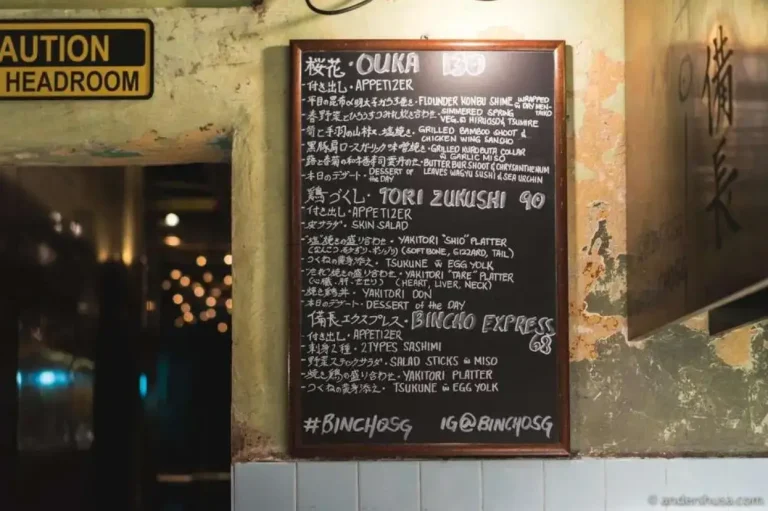 CAUTION
HEADROOM
桜花・OUKA 130
・付き出し・APPETIZER
FLOUNDER KONBU SHIME WRAPPED
in DRY MEN-
TAIKO
SIMMERED SPRING
VEG. & HIRYOSU TSUMIRE
筍と手羽の山椒塩焼き・GRILLED BAMBOO SHOOT &
CHICKEN WING SANCHO
黒豚肩ロースガーリック味噌焼き・GRILLED KUROBUTA COLLAR
w GARLIC MISO
BUTTERBUR SHOOT & CHRYSANTHEMUM
LEAVES WAGYU SUSHI & SEA URCHIN
・本日のデザート・DESSERT of
the DAY
鶏づくし・TORI ZUKUSHI 90
・付き出し・APPETIZER
・皮サラダ・SKIN SALAD
・"塩"焼きの盛り合わせ・YAKITORI "SHIO" PLATTER
(SOFTBONE, GIZZARD, TAIL)
・つくねの黄身添え・TSUKUNE w EGG YOLK
・"たれ"焼きの盛り合わせ・YAKITORI "TARE" PLATTER
(心臓・肝・せせり) (HEART, LIVER, NECK)
・焼き鶏丼・YAKITORI DON
・本日のデザート・DESSERT of the DAY
備長エクスプレス・BINCHO EXPRESS
68
・付き出し・APPETIZER
・刺身2種・2TYPES SASHIMI
・野菜スティックサラダ・SALAD STICKS w MISO
・焼き鶏の盛り合わせ・YAKITORI PLATTER
・つくねの黄身添え・TSUKUNE w EGG YOLK
#BINCHOSG IG@BINCHOSG
備長
© andershusa.com